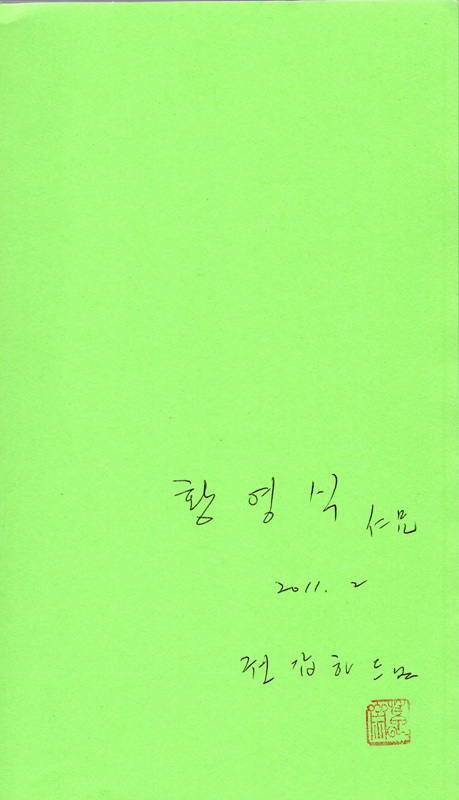 황영식 仁兄
2011. 2
전갑하 드님